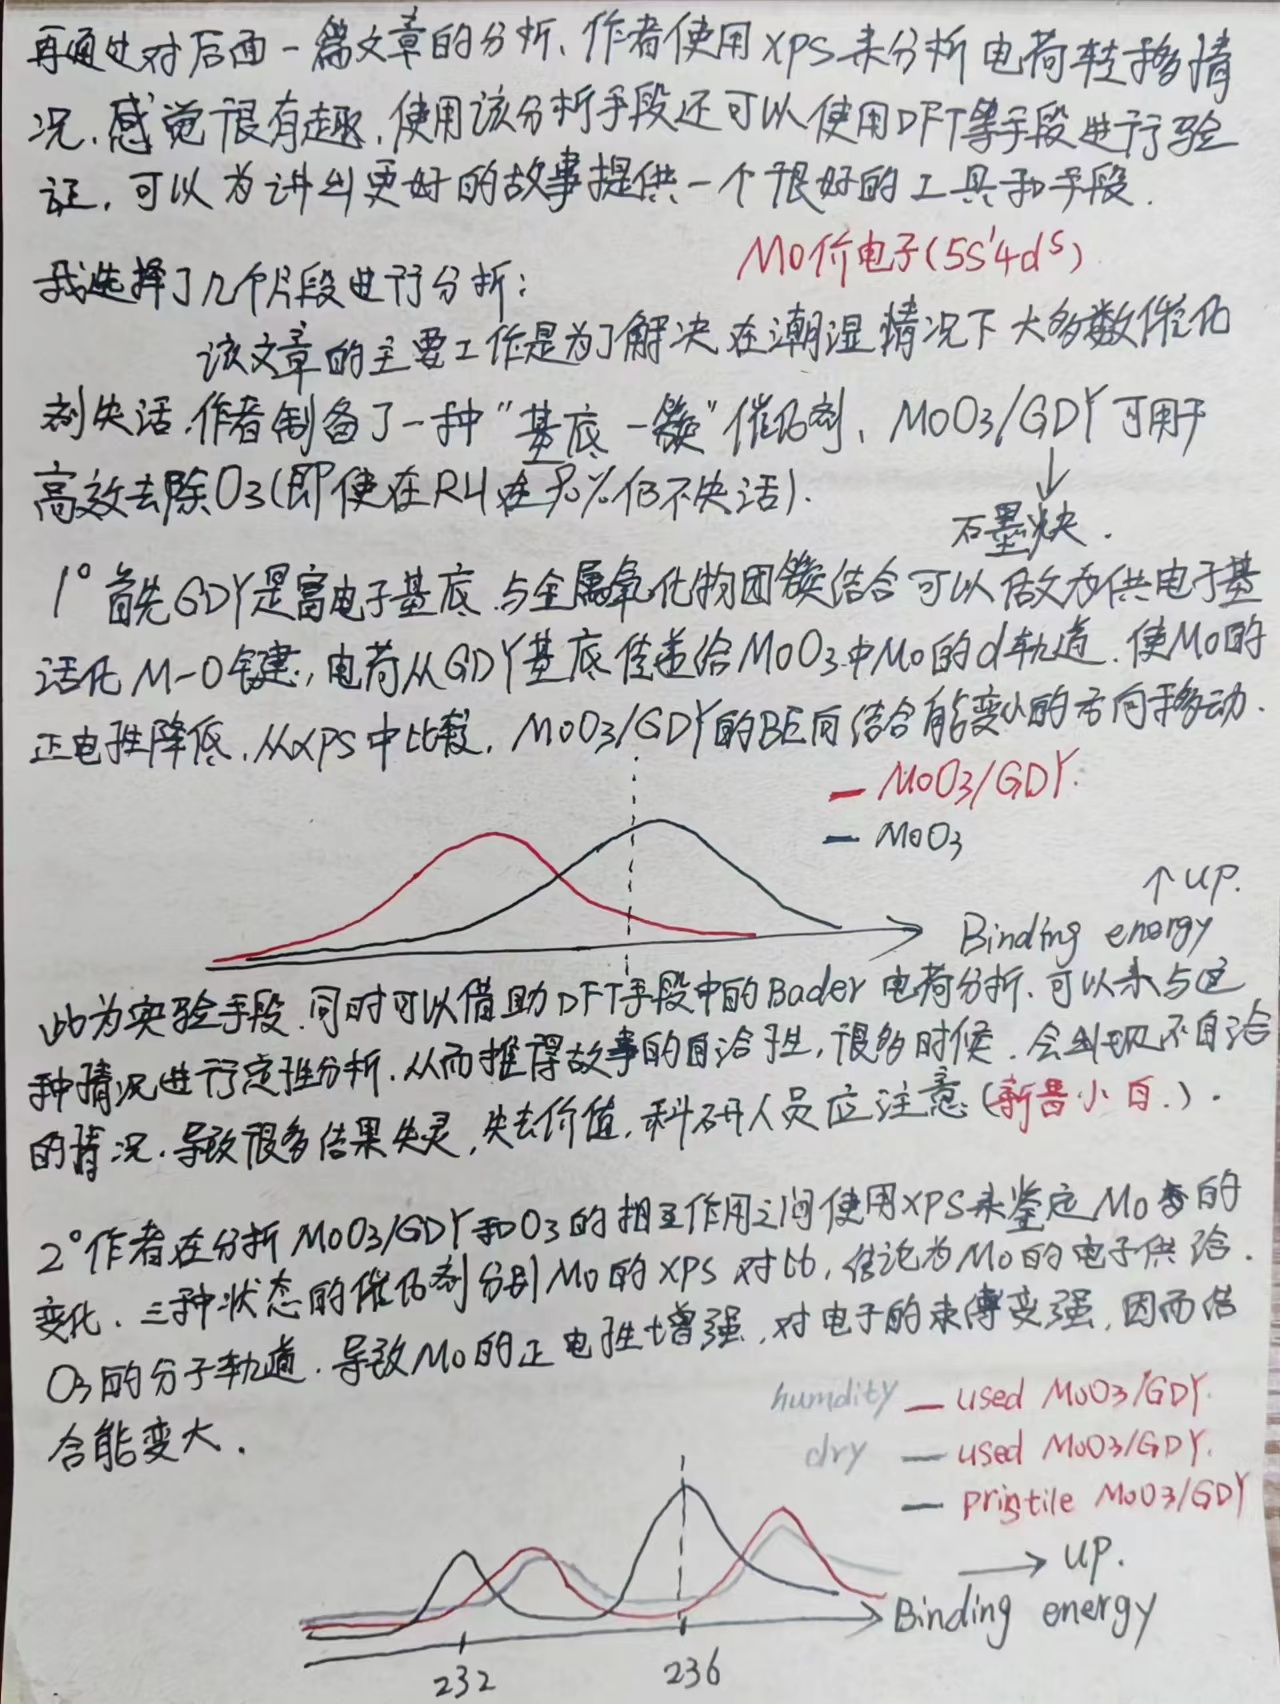 再通过对后面一篇文章的分析、作者使用XPS来分析电荷转移情
况、感觉很有趣,使用该分析手段还可以使用DFT等手段进行验
证,可以为讲出更好的故事提供一个很好的工具和手段.
Mo价电子(5S¹4d⁵)
我选择了几个片段进行分析:
该文章的主要工作是为了解决在潮湿情况下大多数催化
剂失活,作者制备了一种"基底-簇"催化剂、MoO3/GDY可用于
高效去除O3(即使在RH在90%仍不失活).
石墨炔.
1° 首先GDY是富电子基底,与金属氧化物团簇结合可以做为供电子基
活化M-O键,电荷从GDY基底传递给MoO3中Mo的d轨道.使Mo的
正电性降低.从XPS中比较,MoO3/GDY的BE向结合能变小的方向移动.
— MoO3/GDY.
— MoO3
↑ up.
Binding energy
此为实验手段.同时可以借助DFT手段中的Bader电荷分析、可以来与这
种情况进行定性分析.从而推得故事的自洽性,很多时候.会出现不自洽
的情况.导致很多结果失灵,失去价值,科研人员应注意(新晋小白.).
2°作者在分析MoO3/GDY和O3的相互作用之间使用XPS来鉴定Mo的
变化、三种状态的催化剂分别Mo的XPS对比,结论为Mo的电子供给.
O3的分子轨道.导致Mo的正电性增强,对电子的束缚变强,因而结
合能变大.
humdity — used MoO3/GDY.
dry — used MoO3/GDY.
— pristile MoO3/GDY
→ up.
Binding energy
232 236